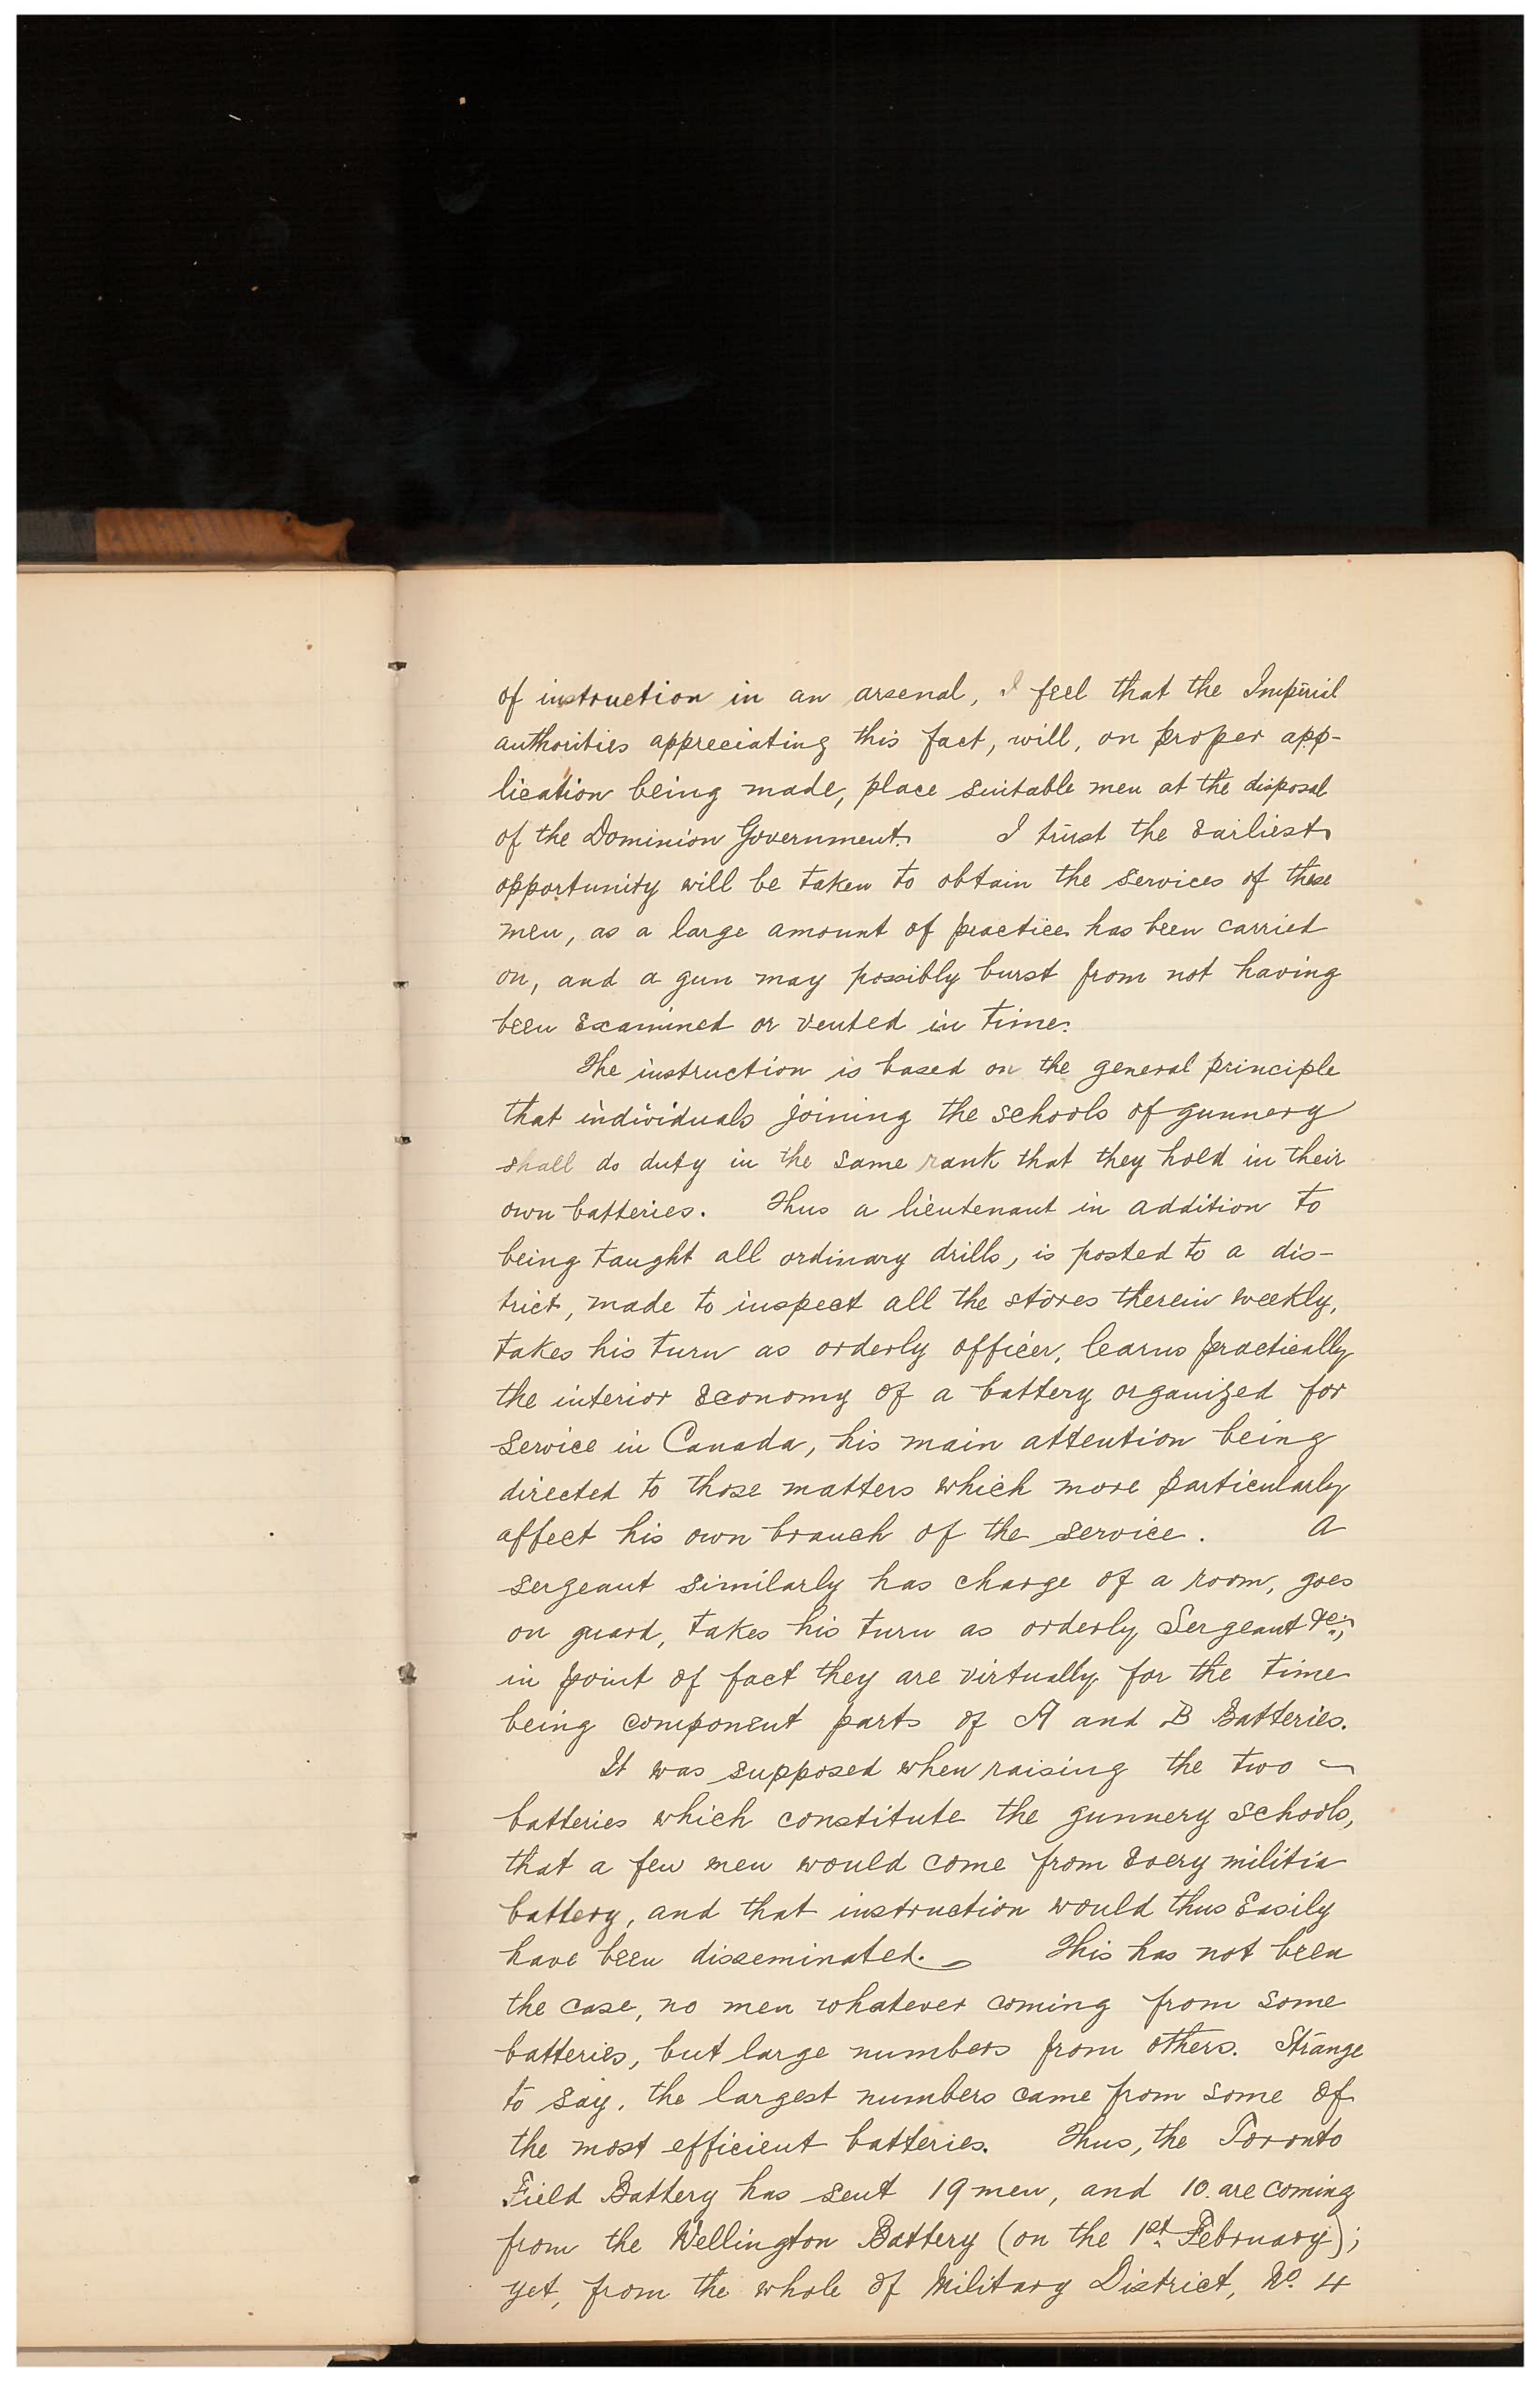 of instruction in an arsenal, I feel that the Imperial
authorities appreciating this fact, will, on proper app-
lication being made, place suitable men at the disposal
of the Dominion Government. I trust the Earliest
opportunity will be taken to obtain the services of these
men, as a large amount of practice has been carried
on, and a gun may possibly burst from not having
been Examined or vented in time.
The instruction is based on the general principle
that individuals joining the schools of gunnery
shall do duty in the same rank that they hold in their
own batteries. Thus a lieutenant in addition to
being taught all ordinary drills, is posted to a dis-
trict, made to inspect all the stores therein weekly,
takes his turn as orderly officer, learns practically
the interior Economy of a battery organized for
Service in Canada, his main attention being
directed to those matters which more particularly
affect his own branch of the service. A
sergeant similarly has charge of a room, goes
on guard, takes his turn as orderly Sergeant &c.;
in point of fact they are virtually for the time
being component parts of A and B Batteries.
It was supposed when raising the two
batteries which constitute the gunnery schools,
that a few men would come from Every militia
battery, and that instruction would thus Easily
have been disseminated. This has not been
the case, no men whatever coming from some
batteries, but large numbers from others. Strange
to say, the largest numbers came from some of
the most efficient batteries. Thus, the Toronto
Field Battery has sent 19 men, and 10 are coming
from the Wellington Battery (on the 1st February);
yet, from the whole of Military District, No. 4